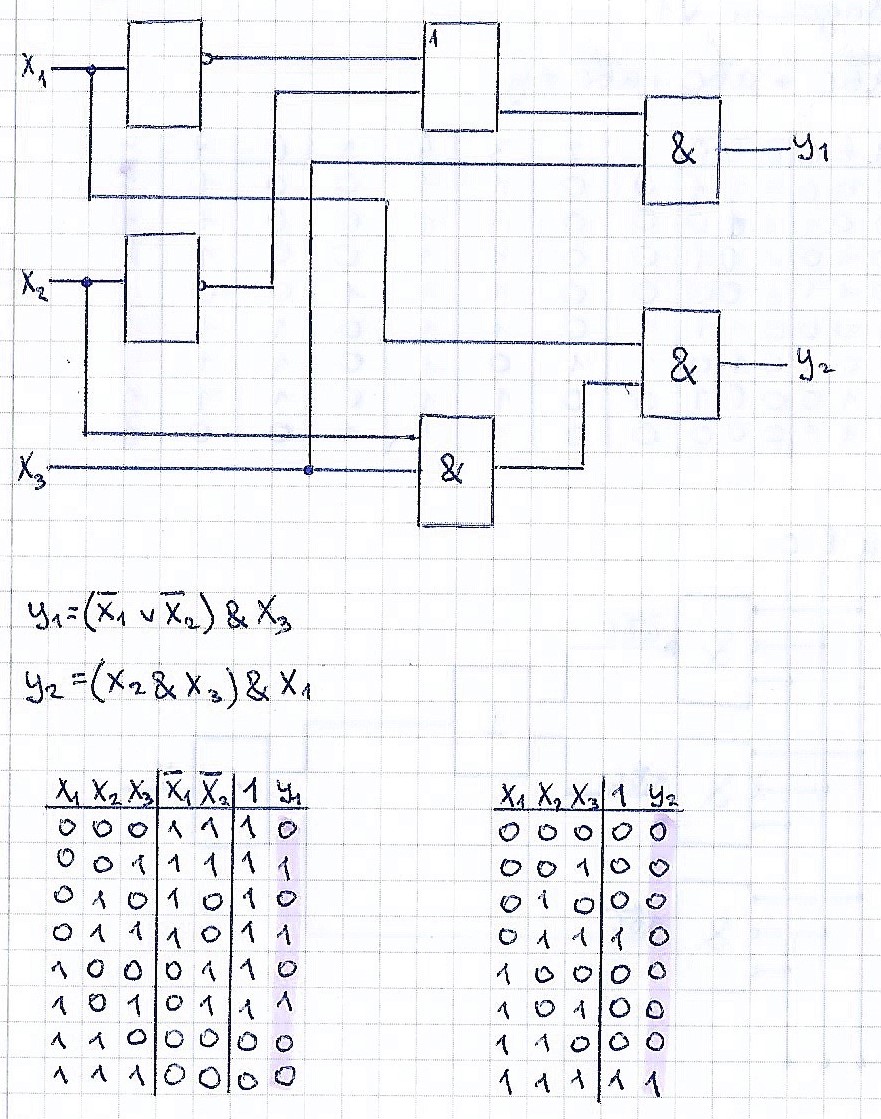 X₁
1
& y₁
X₂
& y₂
X₃ &
y₁=(X̅₁ ∨ X̅₂) & X₃
y₂=(X₂ & X₃) & X₁
X₁ X₂ X₃ X̅₁ X̅₂ 1 y₁
0 0 0 1 1 1 0
0 0 1 1 1 1 1
0 1 0 1 0 1 0
0 1 1 1 0 1 1
1 0 0 0 1 1 0
1 0 1 0 1 1 1
1 1 0 0 0 0 0
1 1 1 0 0 0 0
X₁ X₂ X₃ 1 y₂
0 0 0 0 0
0 0 1 0 0
0 1 0 0 0
0 1 1 1 0
1 0 0 0 0
1 0 1 0 0
1 1 0 0 0
1 1 1 1 1